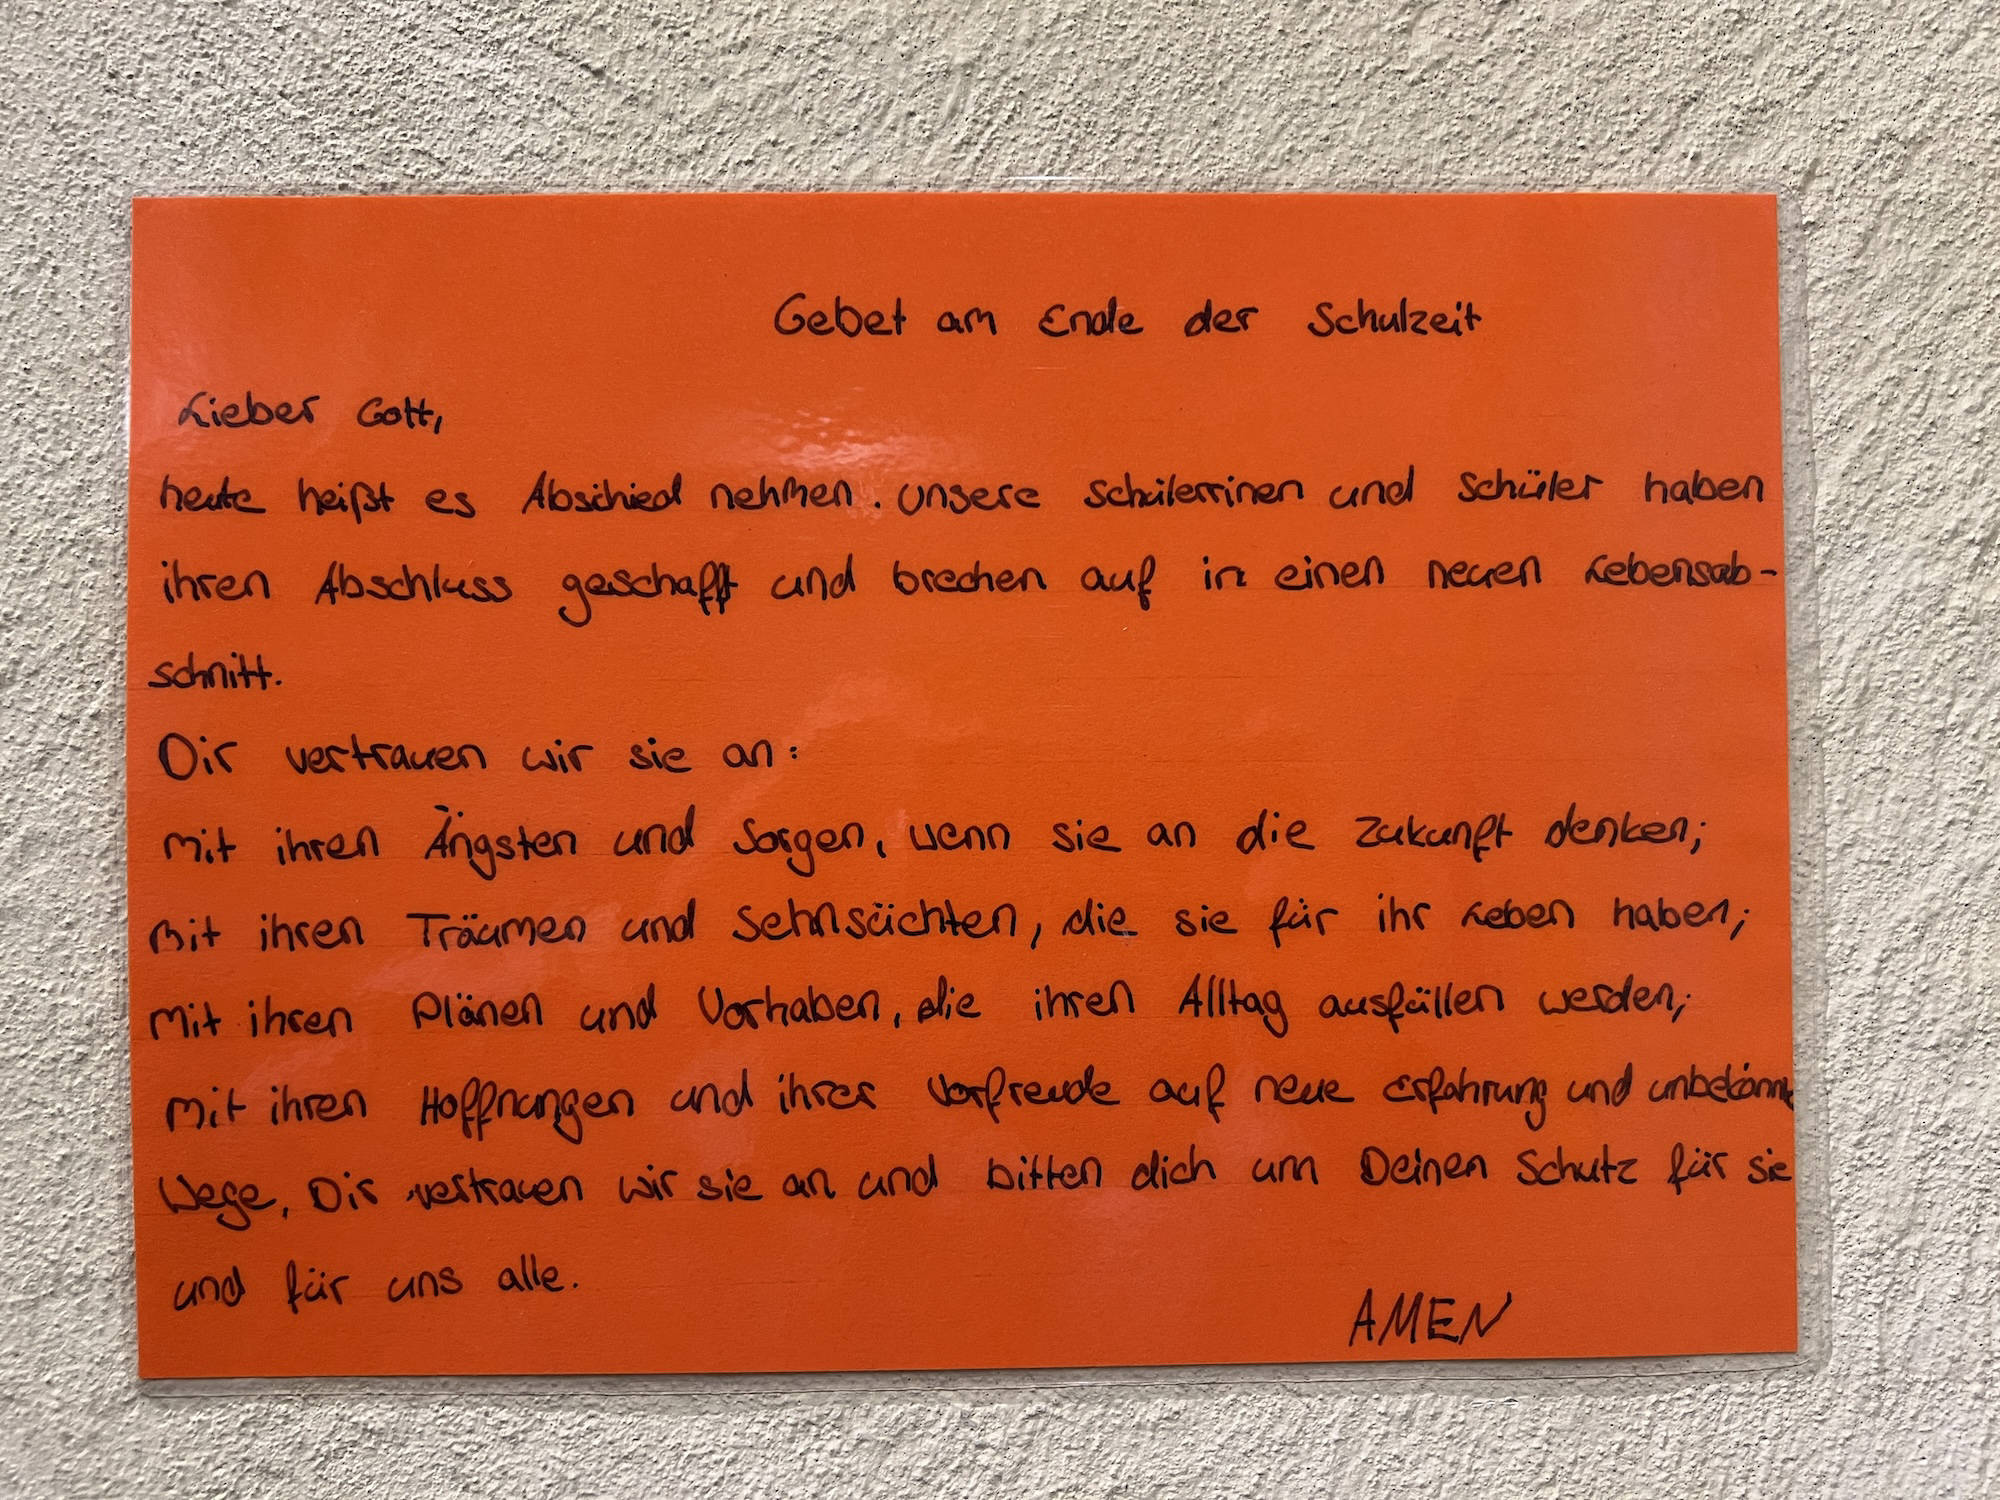 Gebet am Ende der Schulzeit
Lieber Gott,
heute heißt es Abschied nehmen. Unsere Schülerrinen und Schüler haben
ihren Abschluss geschafft und brechen auf in einen neuen Lebensab-
schnitt.
Dir vertrauen wir sie an:
mit ihren Ängsten und Sorgen, wenn sie an die Zukunft denken;
mit ihren Träumen und Sehnsüchten, die sie für ihr Leben haben;
mit ihren Plänen und Vorhaben, die ihren Alltag ausfüllen werden;
mit ihren Hoffnungen und ihrer Vorfreude auf neue Erfahrung und unbekannte
Wege. Dir vertrauen wir sie an und bitten dich um Deinen Schutz für sie
und für uns alle.
AMEN